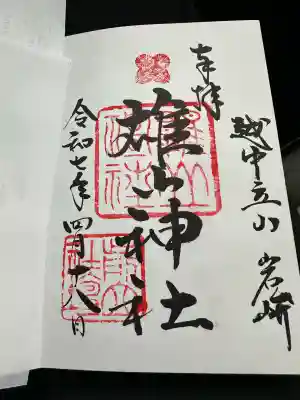 奉拝
越中立山 岩峅
雄山神社
令和七年四月十八日